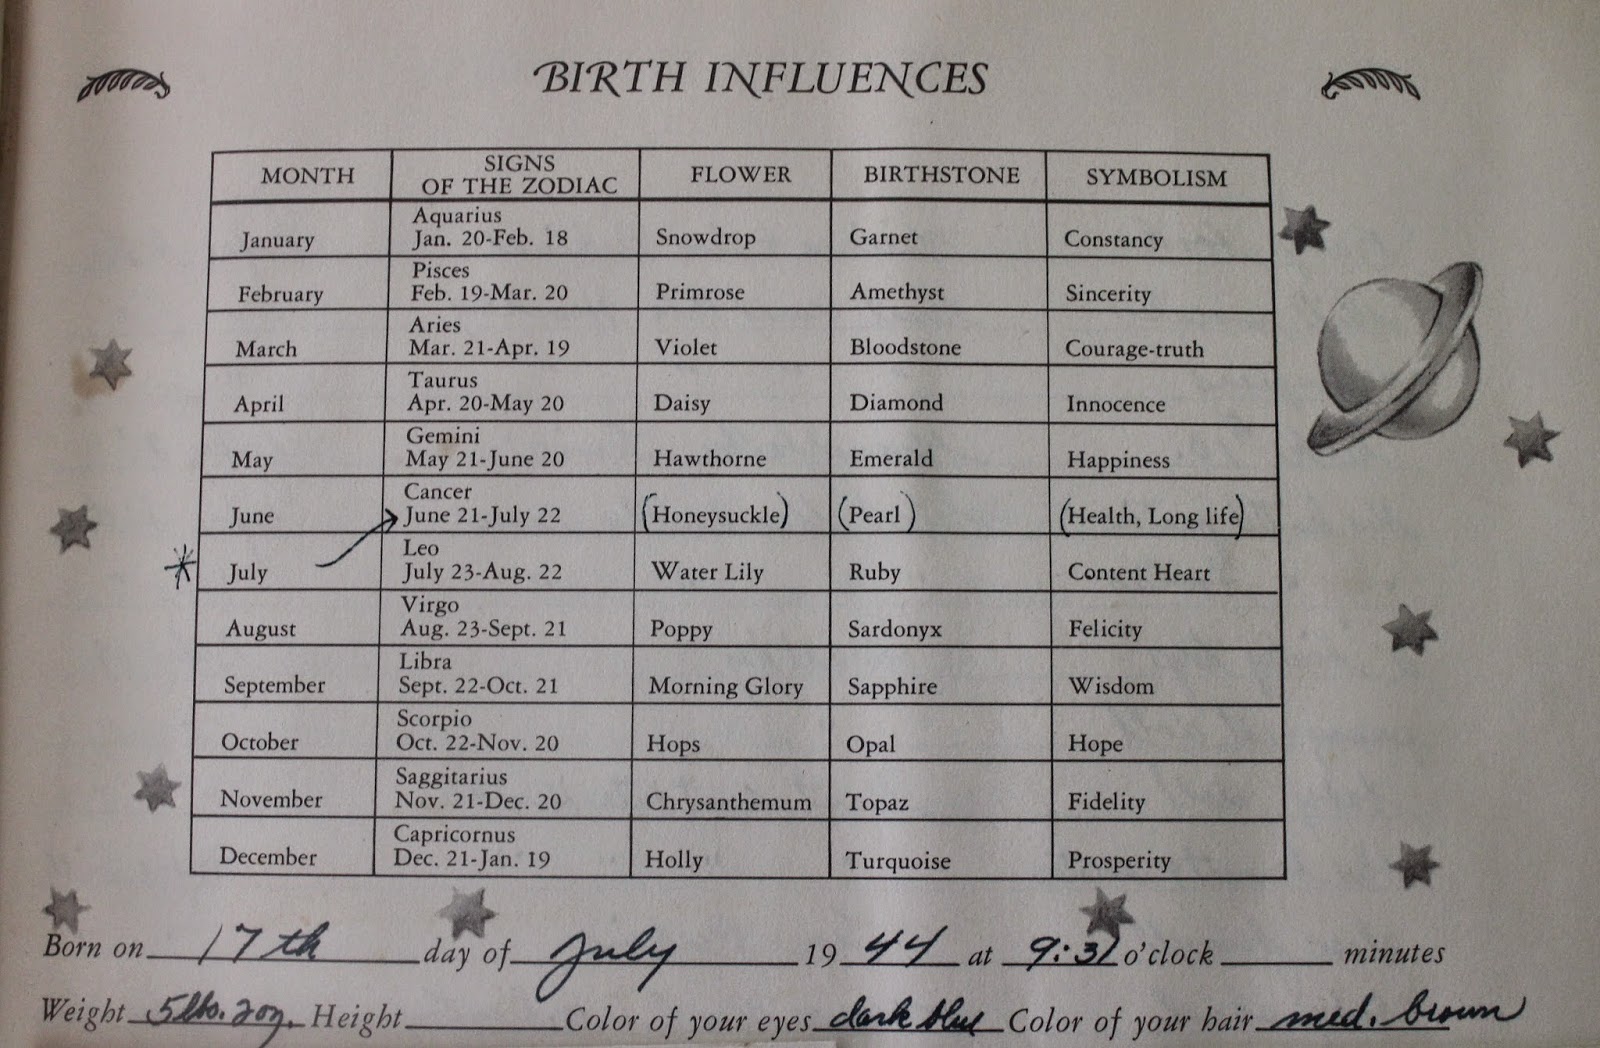 BIRTH INFLUENCES
MONTH SIGNS OF THE ZODIAC FLOWER BIRTHSTONE SYMBOLISM
January Aquarius Jan. 20-Feb. 18 Snowdrop Garnet Constancy
February Pisces Feb. 19-Mar. 20 Primrose Amethyst Sincerity
March Aries Mar. 21-Apr. 19 Violet Bloodstone Courage-truth
April Taurus Apr. 20-May 20 Daisy Diamond Innocence
May Gemini May 21-June 20 Hawthorne Emerald Happiness
June Cancer June 21-July 22 (Honeysuckle) (Pearl) (Health, Long life)
* July Leo July 23-Aug. 22 Water Lily Ruby Content Heart
August Virgo Aug. 23-Sept. 21 Poppy Sardonyx Felicity
September Libra Sept. 22-Oct. 21 Morning Glory Sapphire Wisdom
October Scorpio Oct. 22-Nov. 20 Hops Opal Hope
November Saggitarius Nov. 21-Dec. 20 Chrysanthemum Topaz Fidelity
December Capricornus Dec. 21-Jan. 19 Holly Turquoise Prosperity
Born on 17th day of July 1944 at 9:31 o'clock minutes
Weight 5lbs. 2oz. Height Color of your eyes dark blue Color of your hair med. brown